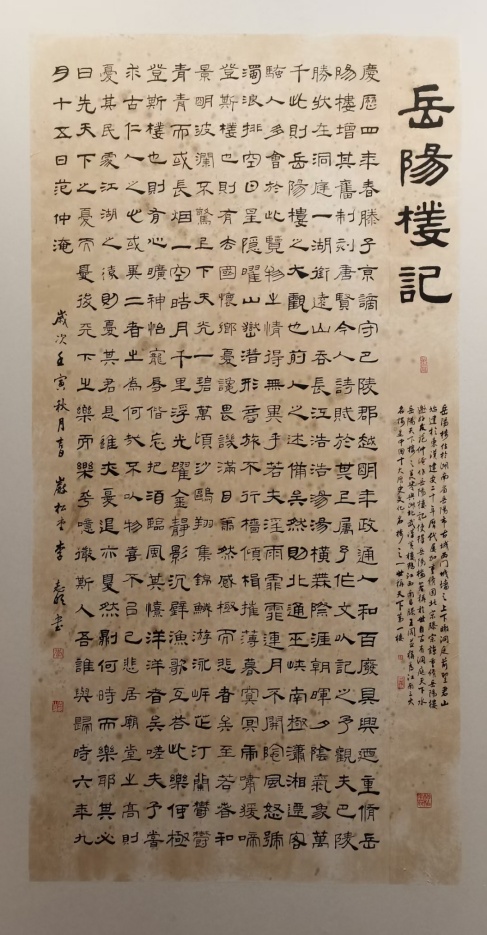 岳陽樓記
岳陽樓位於湖南省岳陽市古城西門城牆之上下瞰洞庭前望君山
始建於東漢建安二十年歷代屢加重修北宋滕宗諒重修岳陽樓
邀好友范仲淹作岳陽樓記使得岳陽樓著稱於世自古有洞庭天下水
岳陽天下樓之美譽與湖北武漢黃鶴樓江西南昌滕王閣並稱為江南三大
名樓是中國十大歷史文化名樓之一世稱天下第一樓
慶歷四年春滕子京謫守巴陵郡越明年政通人和百廢具興迺重脩岳
陽樓增其舊制刻唐賢今人詩賦於其上屬予作文以記之予觀夫巴陵
勝狀在洞庭一湖銜遠山吞長江浩浩湯湯橫無際涯朝暉夕陰氣象萬
千此則岳陽樓之大觀也前人之述備矣然則北通巫峽南極瀟湘遷客
騷人多會於此覽物之情得無異乎若夫淫雨霏霏連月不開陰風怒號
濁浪排空日星隱曜山嶽潛形商旅不行檣傾楫摧薄暮冥冥虎嘯猨啼
登斯樓也則有去國懷鄉憂讒畏譏滿目蕭然感極而悲者矣至若春和
景明波瀾不驚上下天光一碧萬頃沙鷗翔集錦鱗游泳岸芷汀蘭鬱鬱
青青而或長烟一空皓月千里浮光躍金靜影沉璧漁歌互荅此樂何極
登斯樓也則有心曠神怡寵辱偕忘把酒臨風其憙洋洋者矣嗟夫予嘗
求古仁人之心或異二者之為何哉不以物喜不以己悲居廟堂之高則
憂其民處江湖之遠則憂其君是進亦憂退亦憂然則何時而樂耶其必
曰先天下之憂而憂後天下之樂而樂乎噫微斯人吾誰與歸時六年九
月十五日范仲淹
歲次壬寅秋月吉日嚴松堂李志書